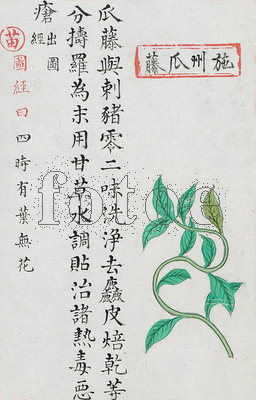 施州瓜藤
瓜藤與刺豬零二味洗淨去麤皮焙乾等
分擣羅為末用甘草水調貼治諸熱毒惡
瘡出圖經
苗圖經曰四時有葉無花